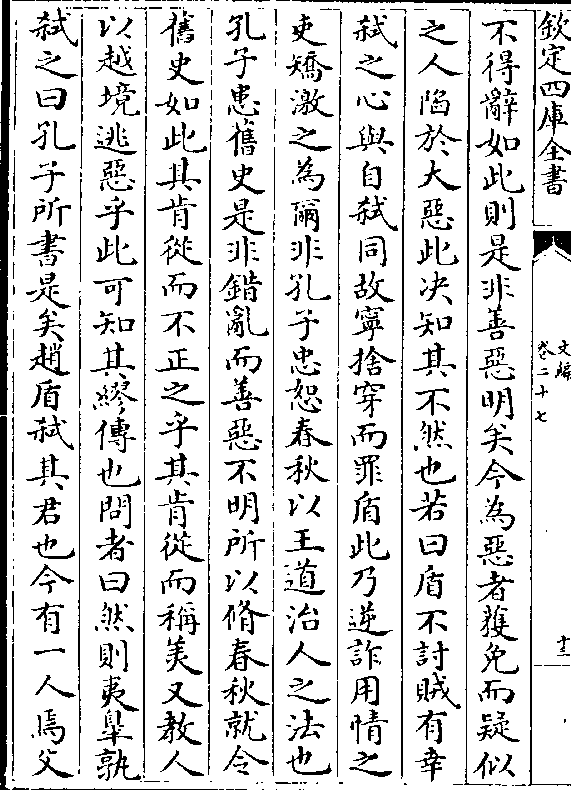 欽定四庫全書
文編
卷二十七
十三
不得辭如此則是非善惡明矣今為惡者獲免而疑似
之人陷於大惡此决知其不然也若曰盾不討賊有幸
弑之心與自弑同故寧捨穿而罪盾此乃逆詐用情之
吏矯激之為爾非孔子忠恕春秋以王道治人之法也
孔子患舊史是非錯亂而善惡不明所以脩春秋就令
舊史如此其肯從而不正之乎其肯從而稱美又教人
以越境逃惡乎此可知其繆傳也問者曰然則夷臯孰
弑之曰孔子所書是矣趙盾弑其君也今有一人焉父